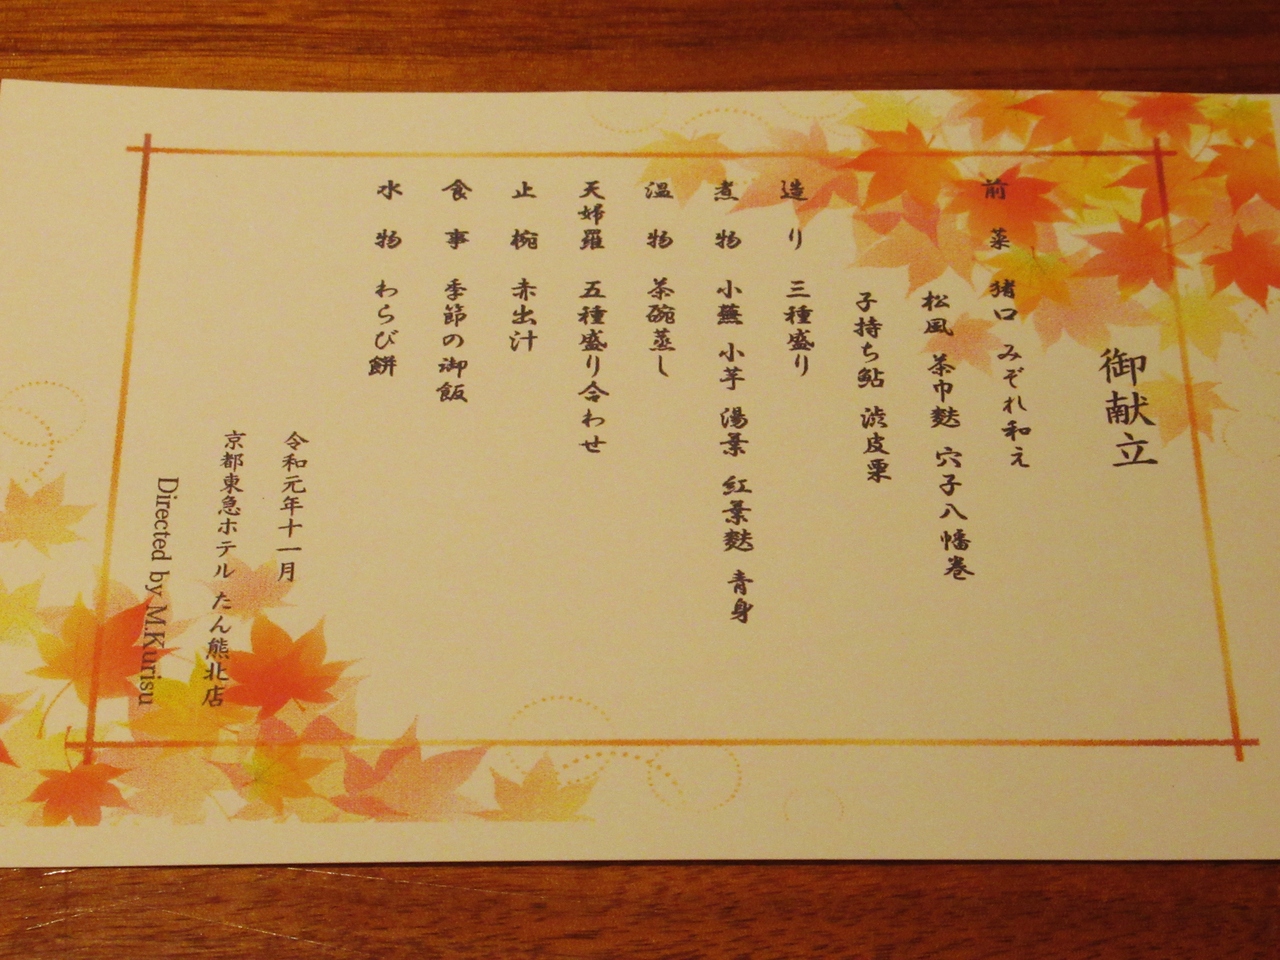 御献立
前菜 猪口 みぞれ和え
松風 茶巾麩 穴子八幡巻
子持ち鮎 渋皮栗
造り 三種盛り
煮物 小蕪 小芋 湯葉 紅葉麩 青身
温物 茶碗蒸し
天婦羅 五種盛り合わせ
止椀 赤出汁
食事 季節の御飯
水物 わらび餅
令和元年十一月
京都東急ホテル たん熊北店
Directed by M.Kurisu